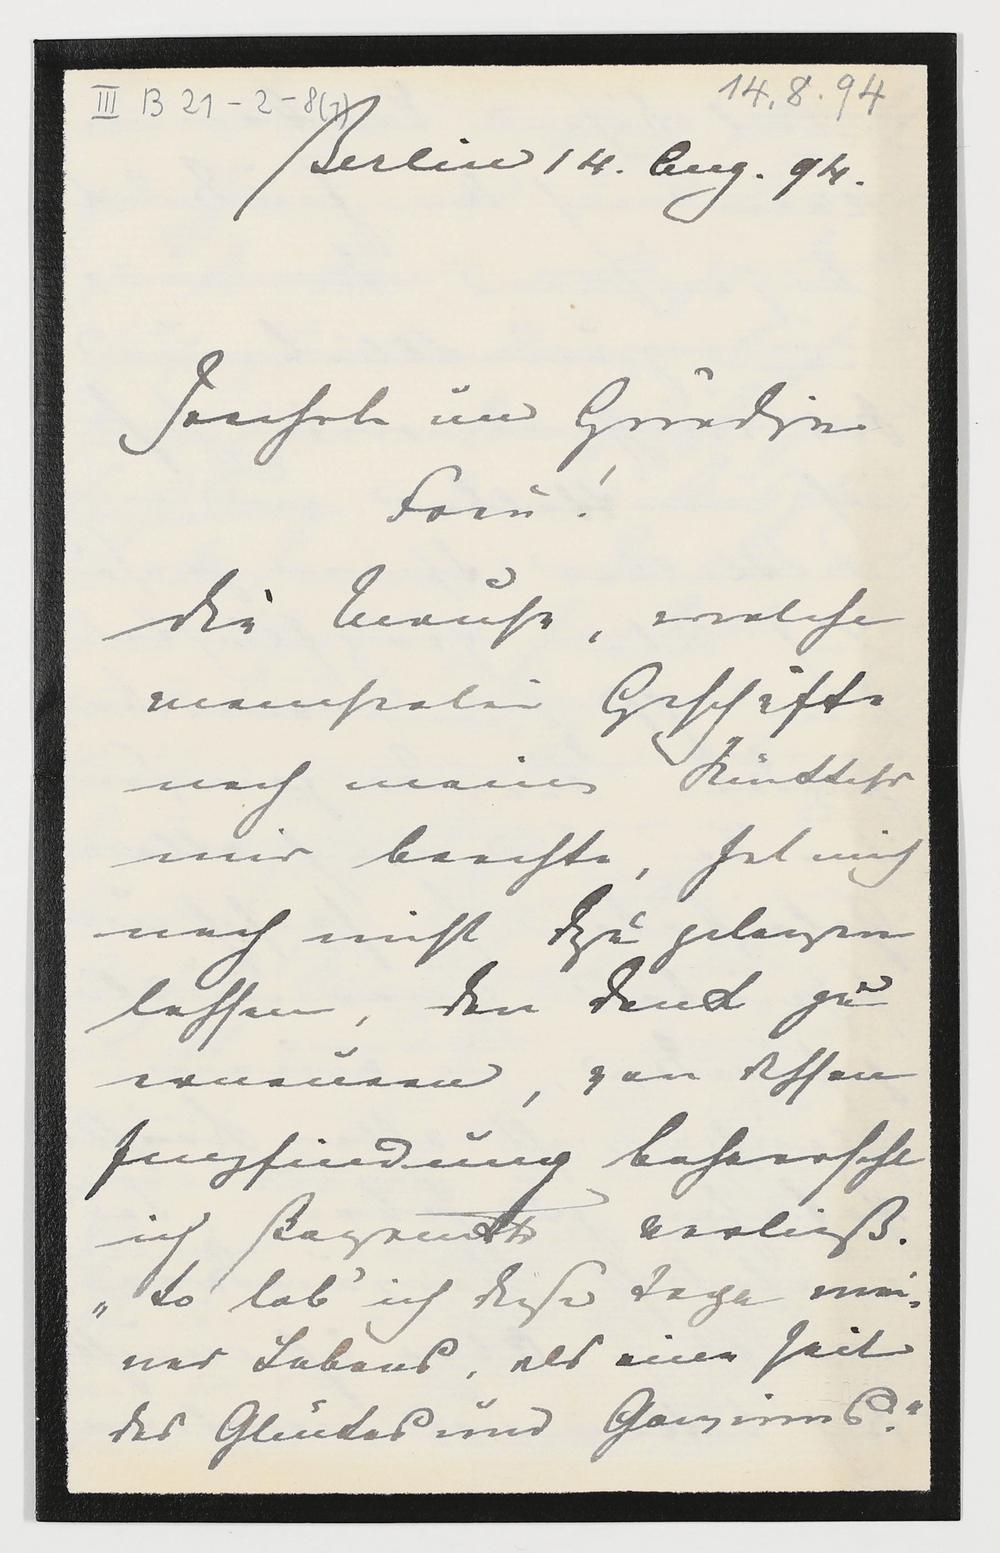 III B 21-2-8(1)
14.8.94
Berlin 14. Aug. 94.
Hochverehrte und Gnädige
Frau!
Die Unruhe, welche
mancherlei Geschäfte
nach meiner Rückkehr
mir brachte, hat mich
noch nicht dazu gelangen
lassen, den Dank zu
erneuern, von dessen
Empfindung beherrscht
ich Bayreuth verließ.
„So lob' ich diese Tage mei-
nes Lebens, als eine Zeit
des Glückes und Gewinns."